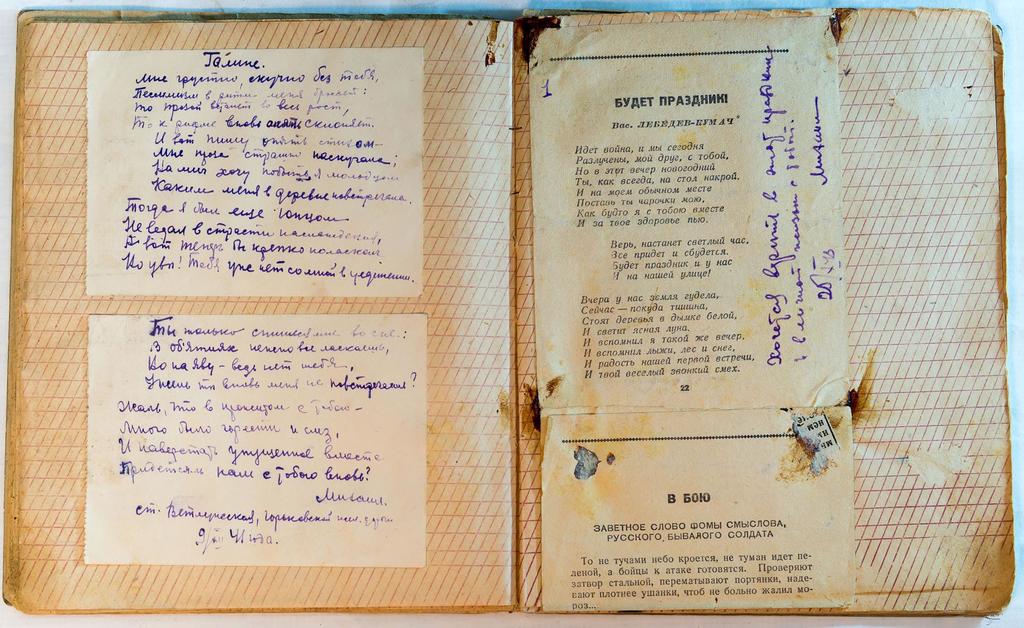 Галине.
Мне грустно скучно без тебя,
Пессимизм в ритм меня
То прозой встанет во весь рост,
То к рифме вновь опять склоняет.
И вот пишу опять стихом –
Мне проза страшно наскучила;
На миг хочу побыть я молодцом
Каким меня в деревне повстречала.
Тогда я был еще юнцом
Не ведал в страсти наслаждения,
А вот теперь бы крепко поласкал
Но увы! Тебя уже нет со мной в уединении.
Ты только снишься мне во сне:
В объятиях ласкаешь,
Но на яву – ведь нет тебя,
Ужель ты вновь меня не повстречаешь?
Жаль, что в прошлом с тобою –
Много было горести и слез,
И наверстать упущенное вместе
Придется ли нам с тобою вновь?
Михаил.
ст. Ветлужская, Горьковской
41 года.
БУДЕТ ПРАЗДНИК!
Вас. ЛЕБЕДЕВ-КУМАЧ
Идет война, и мы сегодня
Разлучены, мой друг, с тобой,
Но в этот вечер новогодний
Ты, как всегда, на стол накрой.
И на моем обычном месте
Поставь ты чарочку мою,
Как будто я с тобою вместе
И за твое здоровье пью.
Верь, настанет светлый час,
Все придет и сбудется.
Будет праздник и у нас
И на нашей улице!
Вчера у нас земля гудела,
Сейчас — покуда тишина,
Стоят деревья в дымке белой,
И светит ясная луна.
И вспомнил я такой же вечер,
И вспомнил лыжи, лес и снег,
И радость нашей первой встречи,
И твой веселый звонкий смех.
22
Хочется верить в этот праздник
и в личной жизни с тобой.
Михаил
В БОЮ
ЗАВЕТНОЕ СЛОВО ФОМЫ СМЫСЛОВА,
РУССКОГО БЫВАЛОГО СОЛДАТА
То не тучами небо кроется, не туман идет пе-
леной, а бойцы к атаке готовятся. Проверяют
затвор стальной, перематывают портянки, наде-
вают плотнее ушанки, чтоб не больно жалил мо-
роз...